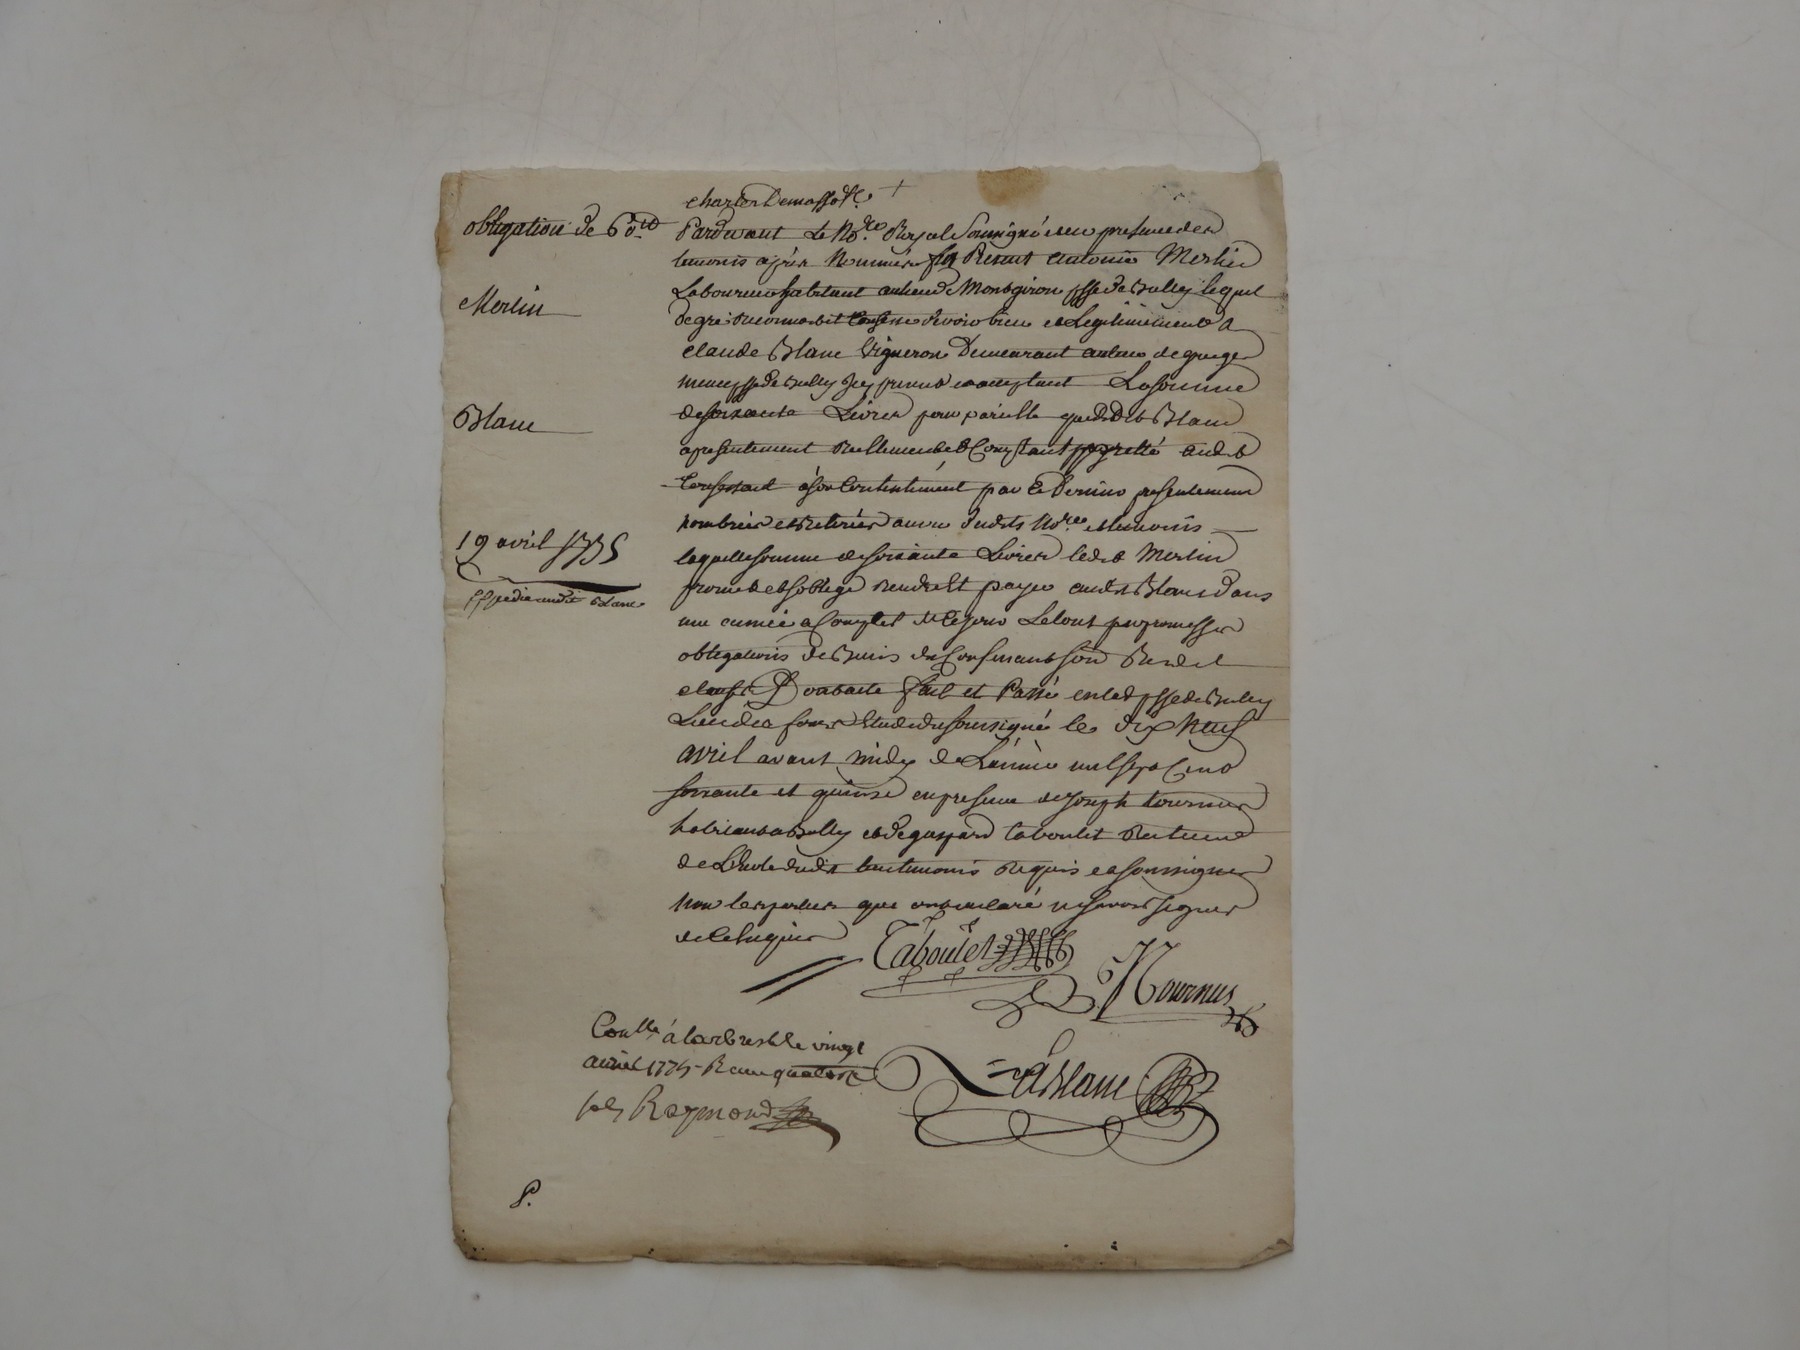 obligation de 60 ₶
Merlin
Blanc
19 avril 1775
Expedié audit Blanc
Pardevant Le No.re Royal Soussigné et en presence des
temoins après Nommés fut Présent antoine Merlin
Laboureur habitant au lieu de Montgiron psse de Bully lequel
de gré reconnoit Confesse devoir bien et Legitimement a
claude Blanc Vigneron Demeurant au lieu de
meme psse de Bully Icy present et acceptant La somme
de soixante Livres pour pareille que led.t Blanc
a presentement reellement et Comptant pretté aud.t
Confessant à son Contentement par Ce Dernier presentement
nombrées et Retirées au vu desdits No.res et temoins
laquelle somme de soixante Livres led.t Merlin
promet et s'oblige rendre et payer aud.t Blanc dans
une année a Compter de Ce jour Le tout par promesses
obligations de Biens
clauses Dont acte fait et Passé en lad psse de Bully
Lieu de etude du soussigné le dix Neuf
avril avant midy de L'année mil sept Cent
soixante et quinze en presence de Joseph tournus
habitant a Bully et de gaspard taboulet
de temoins Requis et soussignés
non les parties que ont declaré ne savoir signer
de Ce Requises
Taboulet
J Tournus
Blanc
Con.lle à larbresle le vingt
avril 1775 - Recu quatorze
sols Raymond
P.